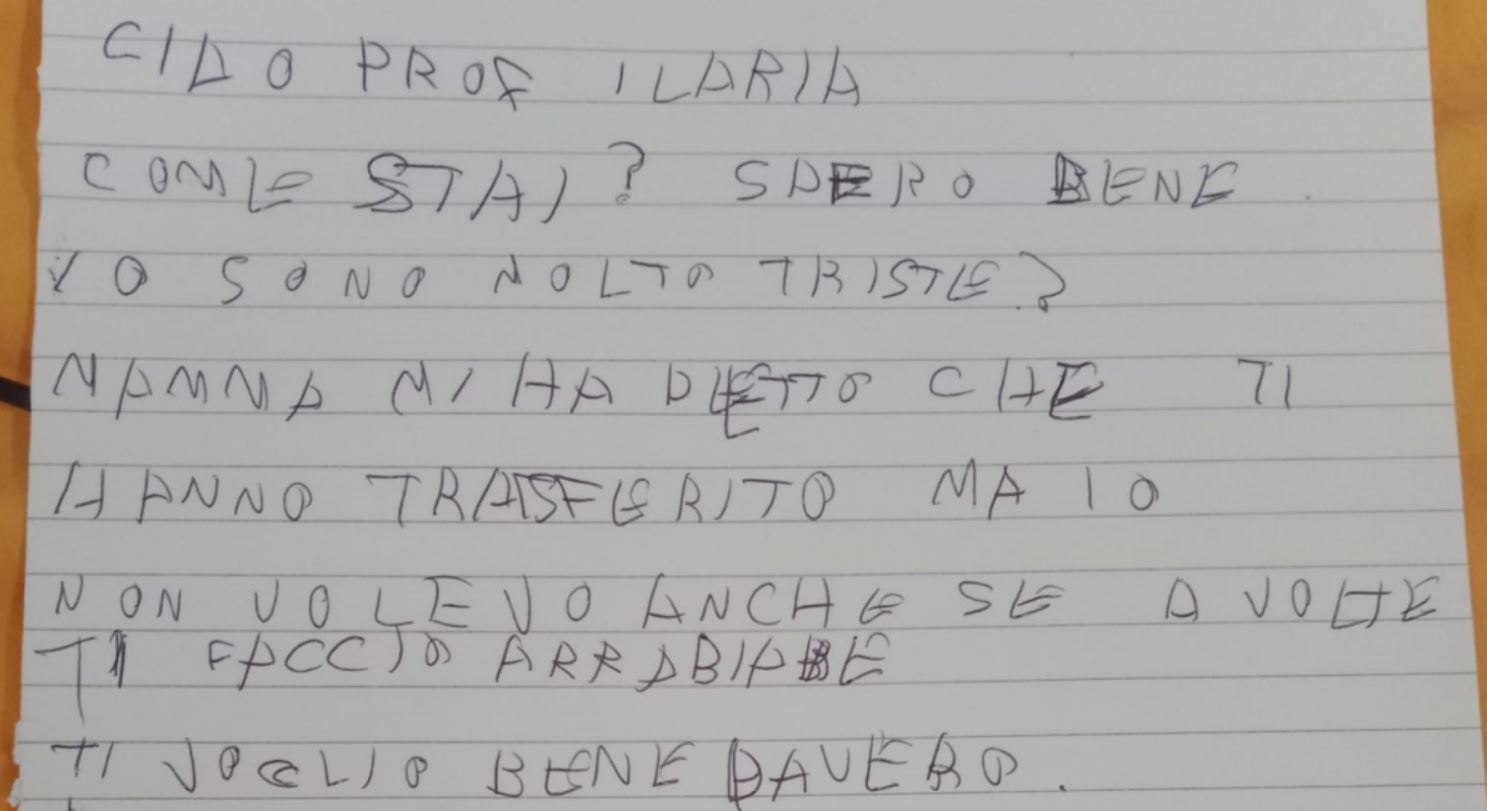 CIAO PROF ILARIA
COME STAI? SPERO BENE.
IO SONO MOLTO TRISTE?
MAMMA MI HA DETTO CHE TI
HANNO TRASFERITO MA IO
NON VOLEVO ANCHE SE A VOLTE
TI FACCIO ARRABIARE
TI VOGLIO BENE DAVERO.